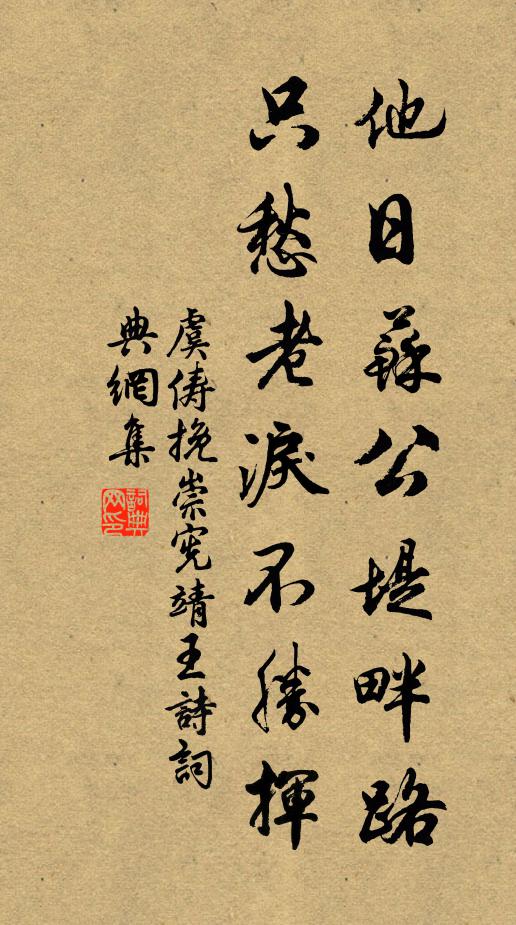 他日蘇公堤畔路
只愁老淚不勝揮
虞儔挽崇宪靖王詩詞
典網集
詞典網印